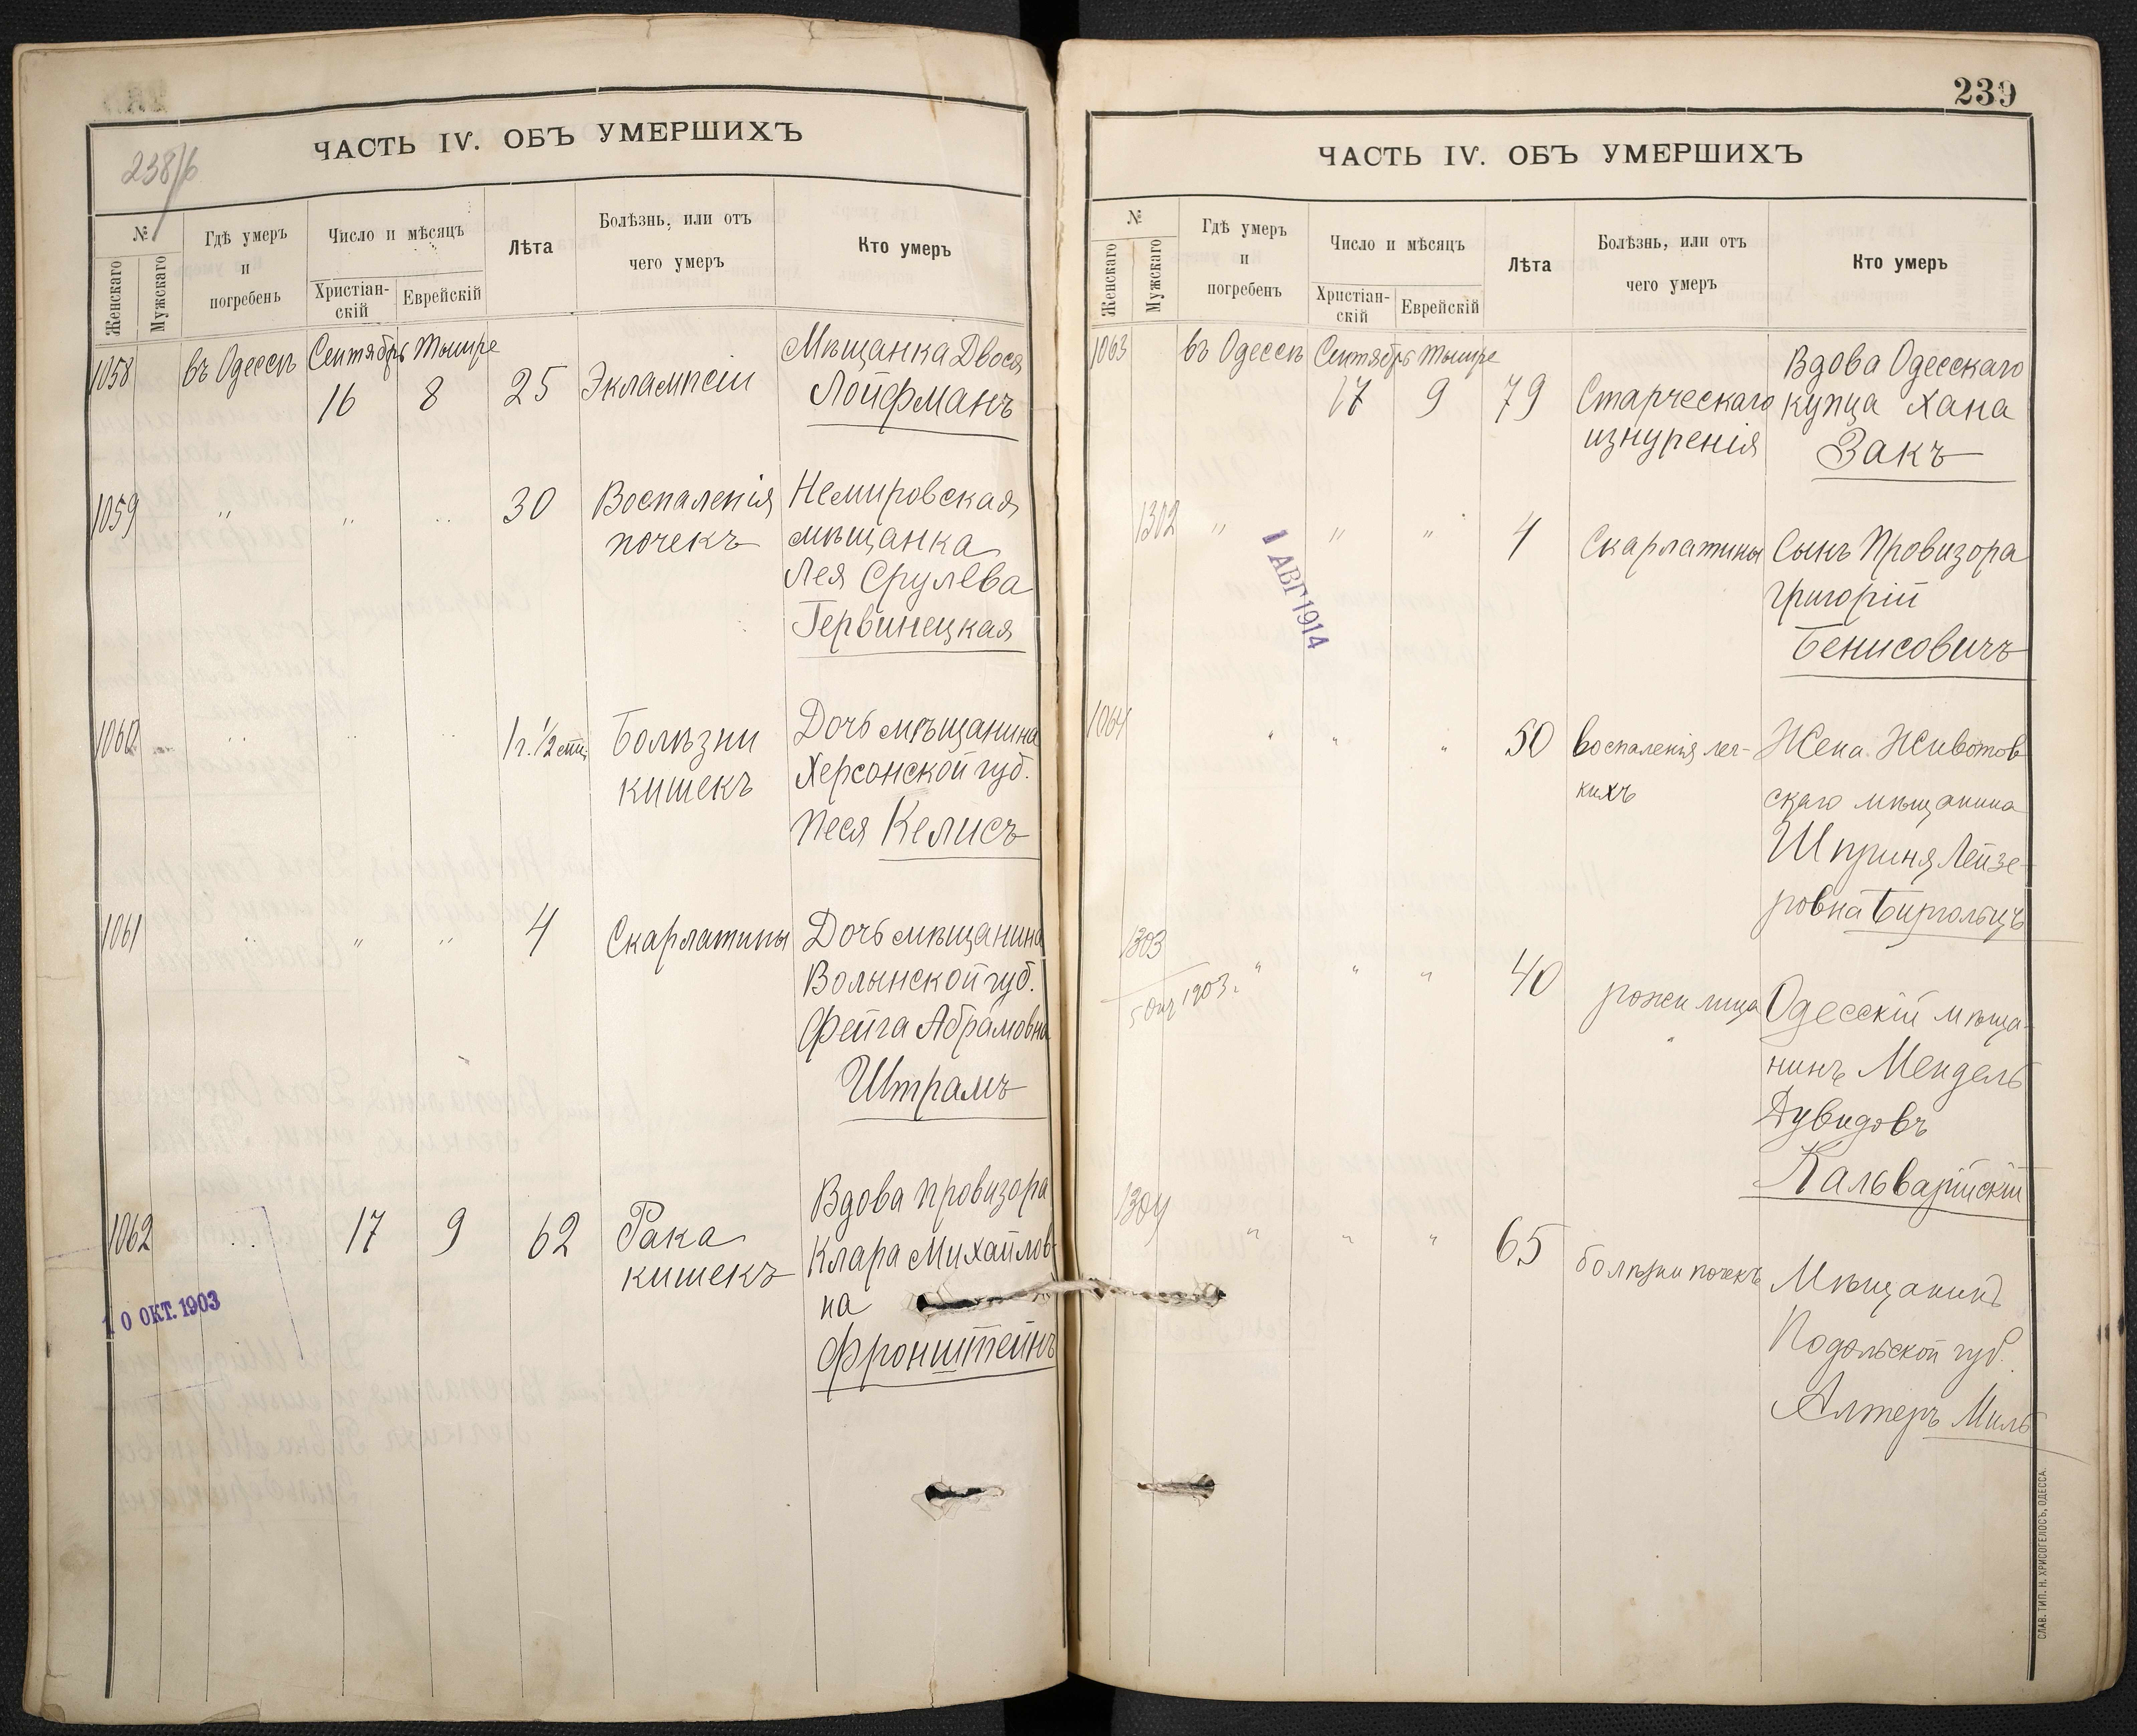 238/б
ЧАСТЬ IV. ОБЪ УМЕРШИХЪ
№
Женскаго
Мужскаго
Гдѣ умеръ
и
погребенъ
Число и мѣсяцъ
Христіан-
скій
Еврейскій
Лѣта
Болѣзнь, или отъ
чего умеръ
Кто умеръ
1058 въ Одессѣ Сентябрь Тишре Мѣщанка Двося
16 8 25 Эклампсіи Лойфманъ
1059 " " " 30 Воспаленія Немировская
почекъ мѣщанка
Лея Срулева
Гервинецкая
1060 " " " 1г. 1/2 Болѣзни Дочь мѣщанина
кишекъ Херсонской губ.
Песя Келисъ
1061 " " " 4 Скарлатины Дочь мѣщанина
Волынской губ.
Фейга Абрамовна
Штрамъ
1062 " 17 9 62 Рака Вдова провизора
кишекъ Клара Михайлов-
на
Фронштейнъ
10 ОКТ. 1903
239
ЧАСТЬ IV. ОБЪ УМЕРШИХЪ
№
Женскаго
Мужскаго
Гдѣ умеръ
и
погребенъ
Число и мѣсяцъ
Христіан-
скій
Еврейскій
Лѣта
Болѣзнь, или отъ
чего умеръ
Кто умеръ
1063 въ Одессѣ Сентябрь Тишре Вдова Одесскаго
17 9 79 Старческаго купца Хана
изнуренія Закъ
1302 " " " 4 Скарлатины Сынъ Провизора
Григорій
Бенисовичъ
1 АВГ 1914
1064 " " " 50 воспаленія лег- Жена Животов
кихъ скаго мѣщанина
Шприня Лейзе-
ровна Биргольцъ
1303 " " " 40 рожи лица Одесскій мѣща-
5 Окт 1903г.
нинъ Мендель
Дувидовъ
Кальварійскій
1304 " " " 65 болѣзни почекъ Мѣщанинъ
Подольской губ.
Алтеръ Миль
СЛАВ. ТИП. Н. ХРИСОГЕЛОСЪ, ОДЕССА.